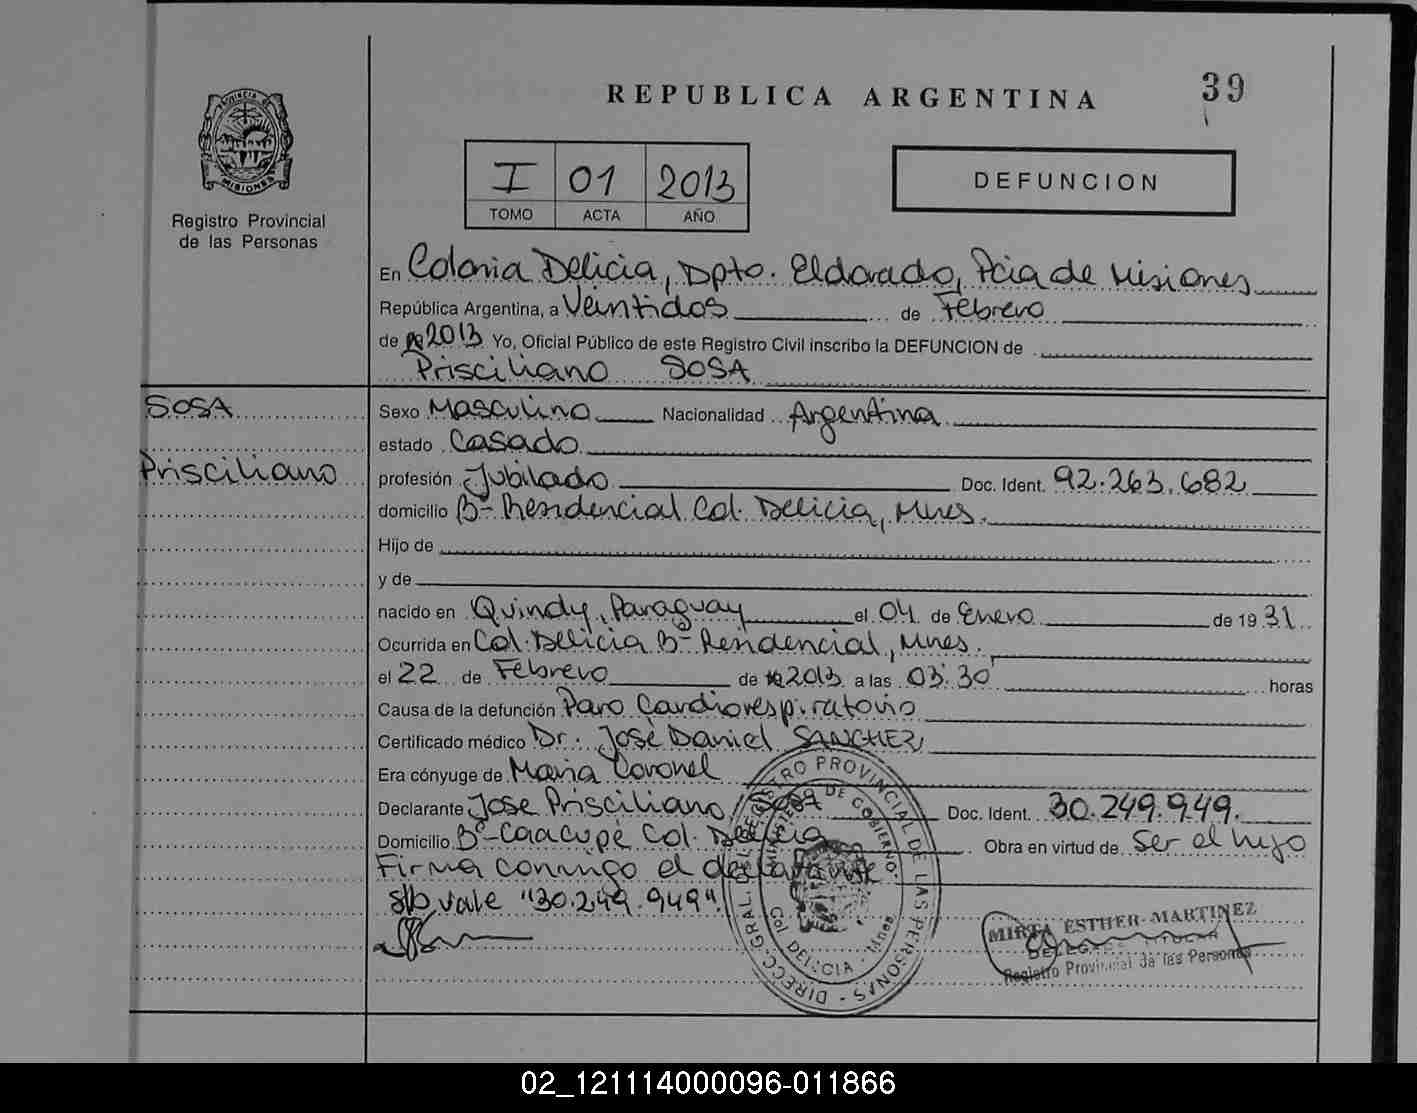 REPUBLICA ARGENTINA
39
PROVINCIA DE
MISIONES
Registro Provincial
de las Personas
I 01 2013
TOMO ACTA AÑO
DEFUNCION
En Colonia Delicia, Dpto. Eldorado, Pcia de Misiones
República Argentina, a Veintidos de Febrero
de 2013 Yo, Oficial Público de este Registro Civil inscribo la DEFUNCION de
Prisciliano SOSA
SOSA
Prisciliano
Sexo Masculino Nacionalidad Argentina
estado Casado
profesión Jubilado Doc. Ident. 92.263.682
domicilio B- Residencial Col. Delicia, Mnes.
Hijo de
y de
nacido en Quindy, Paraguay el 04 de Enero de 1931
Ocurrida en Col. Delicia B- Residencial, Mnes.
el 22 de Febrero de 2013 a las 03:30 horas
Causa de la defunción Paro Cardiorespiratorio
Certificado médico Dr. José Daniel SANCHEZ
Era cónyuge de Maria Coronel
Declarante Jose Prisciliano Sosa Doc. Ident. 30.249.949.
Domicilio B- Caacupé Col. Delicia Obra en virtud de Ser el hijo
Firma conmigo el declarante
s/b vale "30.249.949".
DIRECC. GRAL. DEL REGISTRO PROVINCIAL DE LAS PERSONAS -
MINISTERIO DE GOBIERNO
Col. DELICIA - Mnes
MIRTA ESTHER MARTINEZ
DELEGADA TITULAR
Registro Provincial de las Personas
02_121114000096-011866